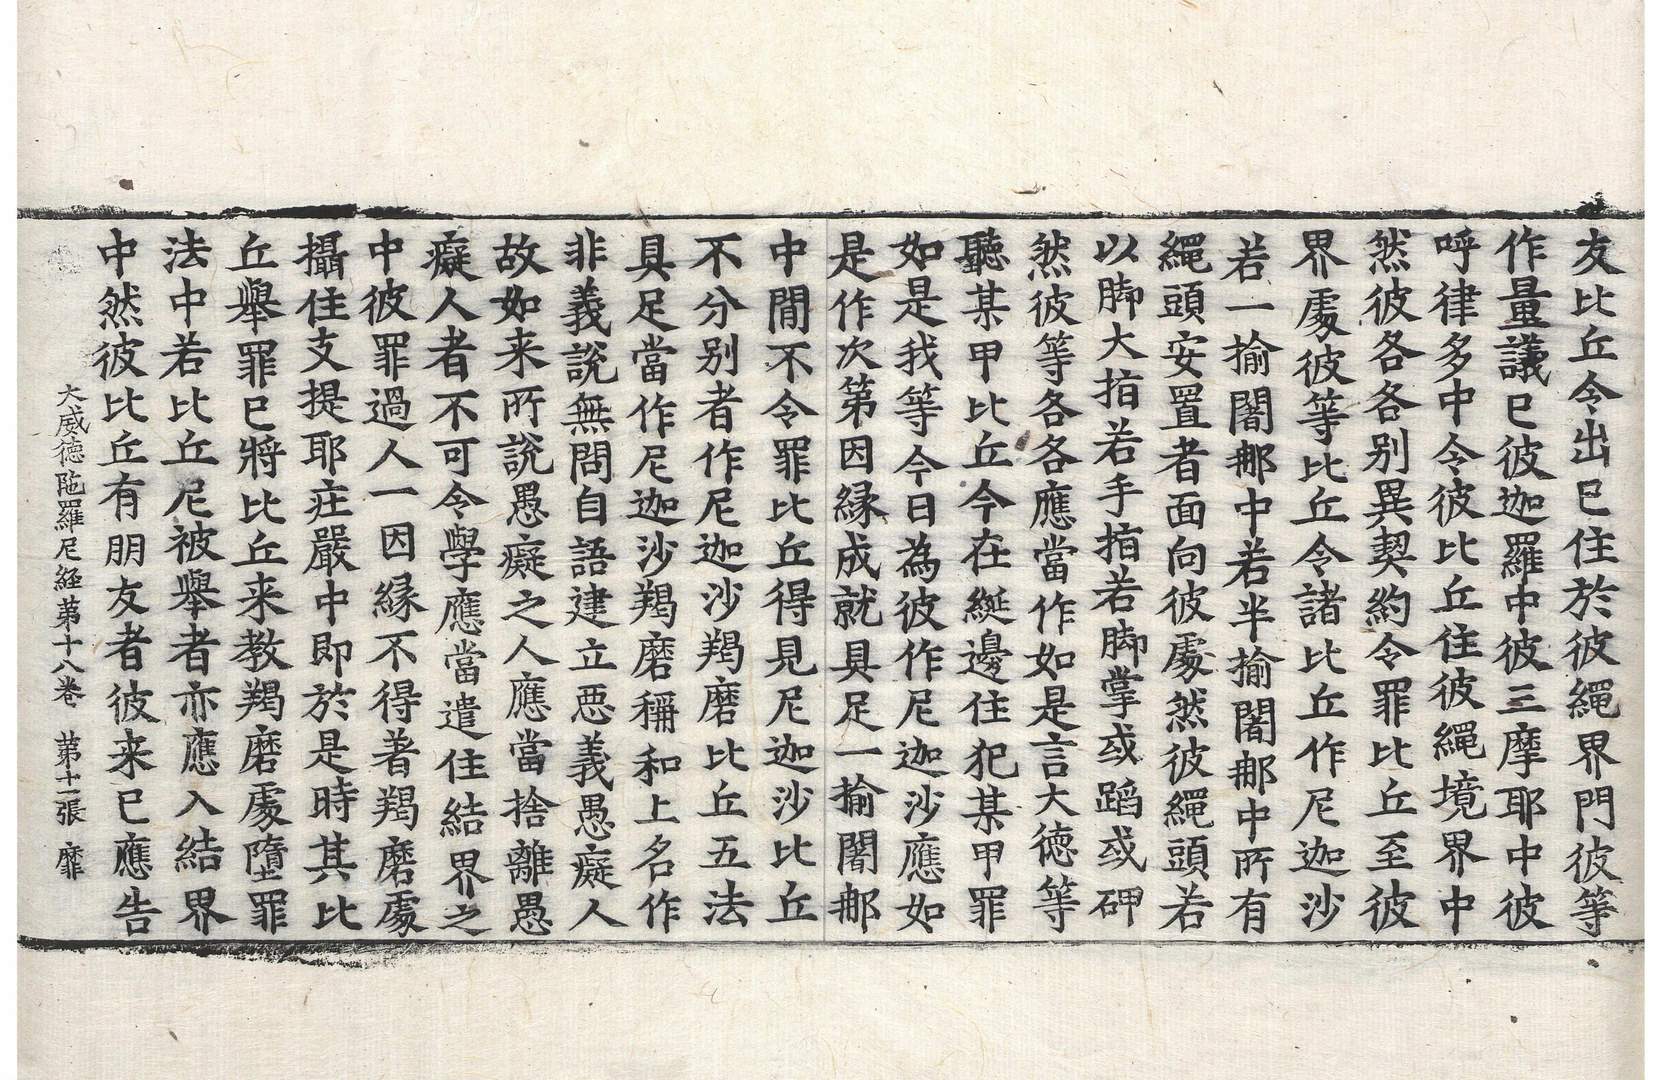 友比丘令出已住於彼繩界門彼等
作量議已彼迦羅中彼三摩耶中彼
呼律多中令彼比丘住彼繩境界中
然彼各各別異契約令罪比丘至彼
界處彼等比丘令諸比丘作尼迦沙
若一揄闍郍中若半揄闍郍中所有
繩頭安置者面向彼處然彼繩頭若
以脚大指若手指若脚掌或蹈或砷
然彼等各各應當作如是言大德等
聽某甲比丘今在綖邊住犯某甲罪
如是我等今日為彼作尼迦沙應如
是作次第因緣成就具足一揄闍郍
中間不令罪比丘得見尼迦沙比丘
不分別者作尼迦沙羯磨比丘五法
具足當作尼迦沙羯磨稱和上名作
非義說無問自語建立惡義愚癡人
故如来所說愚癡之人應當捨離愚
癡人者不可令學應當遣住結界之
中彼罪過人一因緣不得著羯磨處
攝住支提耶庄嚴中即於是時其比
丘舉罪已將比丘来教羯磨處墮罪
法中若比丘尼被舉者亦應入結界
中然彼比丘有朋友者彼来已應告
大威德陁羅尼経苐十八卷 苐十一張 靡